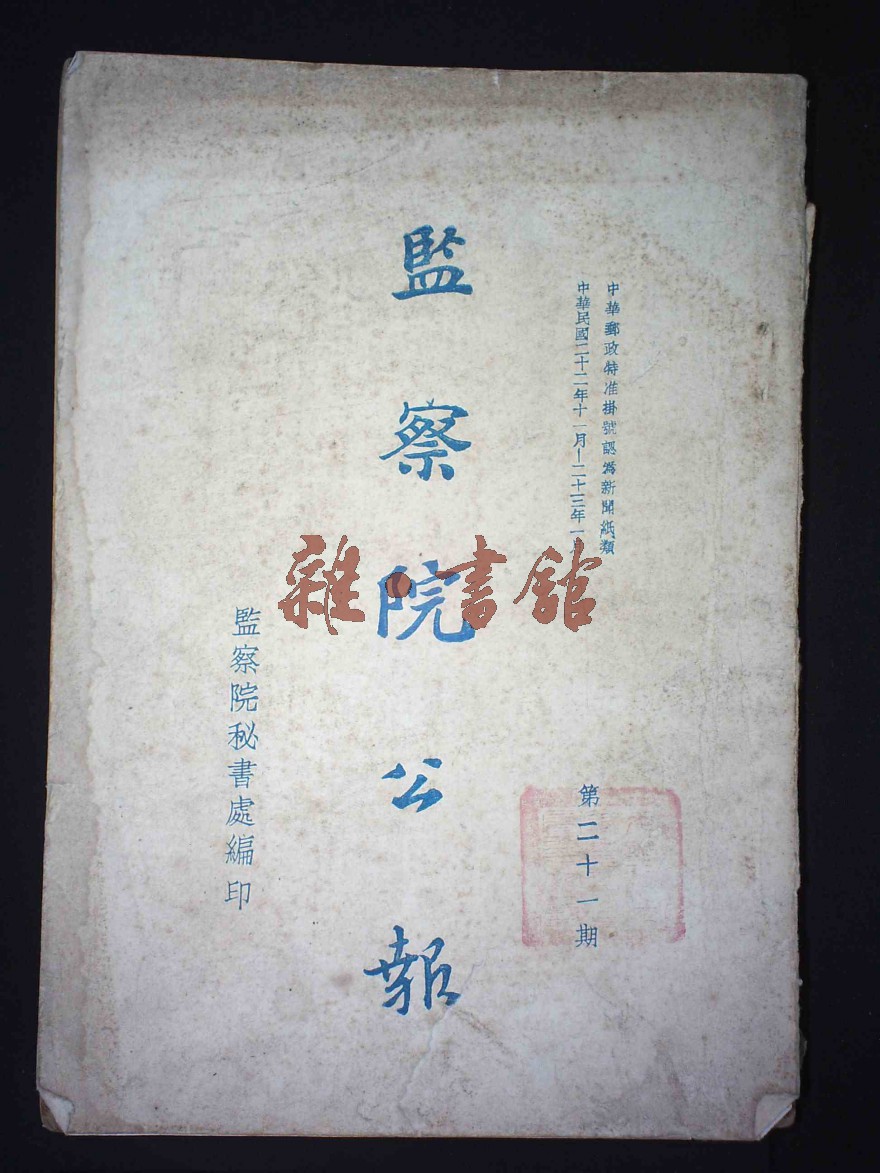 中華郵政特准掛號認爲新聞紙類
中華民國二十二年十一月—二十三年一月
第二十一期
監察院公報
監察院秘書處編印
雜·書館